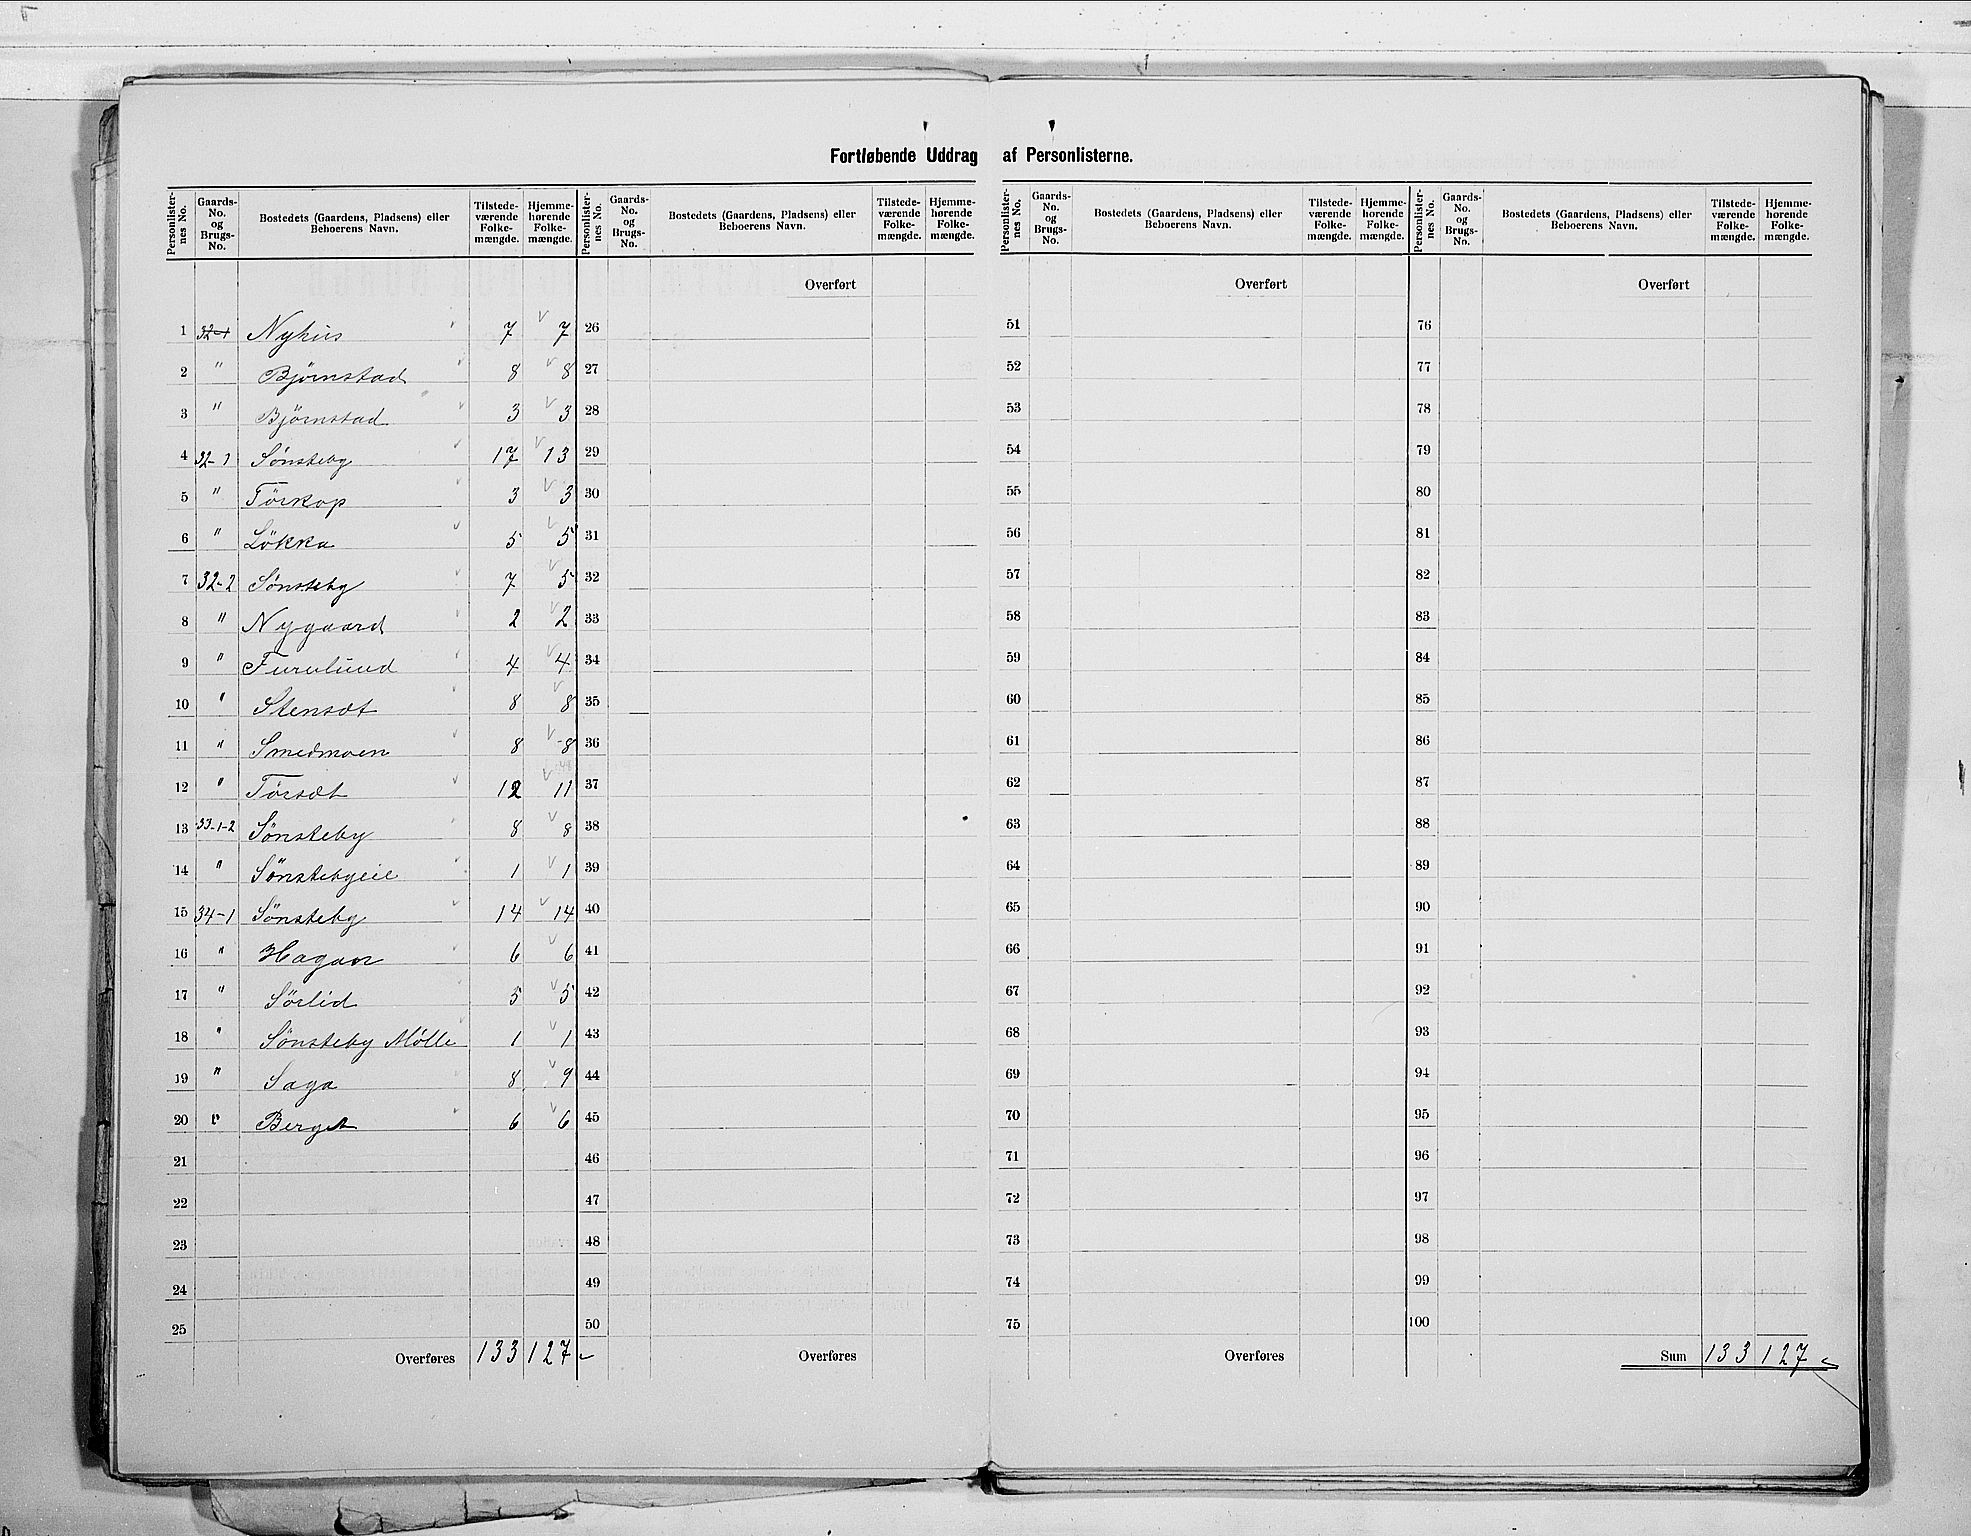 Fortløbende Uddrag af Personlisterne.
Personlister-nes No. | Gaards-No. og Brugs-No. | Bostedets (Gaardens, Pladsens) eller Beboerens Navn. | Tilstede-værende Folke-mængde. | Hjemme-hørende Folke-mængde. | Personlister-nes No. | Gaards-No. og Brugs-No. | Bostedets (Gaardens, Pladsens) eller Beboerens Navn. | Tilstede-værende Folke-mængde. | Hjemme-hørende Folke-mængde. | Personlister-nes No. | Gaards-No. og Brugs-No. | Bostedets (Gaardens, Pladsens) eller Beboerens Navn. | Tilstede-værende Folke-mængde. | Hjemme-hørende Folke-mængde. | Personlister-nes No. | Gaards-No. og Brugs-No. | Bostedets (Gaardens, Pladsens) eller Beboerens Navn. | Tilstede-værende Folke-mængde. | Hjemme-hørende Folke-mængde.
Overført Overført Overført
1 32-1 Nyhus 7 7 26 51 76
2 " Bjørnstad 8 8 27 52 77
3 " Bjørnstad 3 3 28 53 78
4 32-1 Sønsteby 17 13 29 54 79
5 " Törkop 3 3 30 55 80
6 " Lökka 5 5 31 56 81
7 32-2 Sønsteby 7 5 32 57 82
8 " Nygaard 2 2 33 58 83
9 " Furulund 4 4 34 59 84
10 " Stensæt 8 8 35 60 85
11 " Smedmoen 8 8 36 61 86
12 " Törsæt 12 11 37 62 87
13 33-1-2 Sönsteby 8 8 38 63 88
14 " Sönstebyeie 1 1 39 64 89
15 34-1 Sönsteby 14 14 40 65 90
16 " Hagan 6 6 41 66 91
17 " Sörlid 5 5 42 67 92
18 " Sönsteby Mölle 1 1 43 68 93
19 " Saga 8 9 44 69 94
20 " Berget 6 6 45 70 95
21 46 71 96
22 47 72 97
23 48 73 98
24 49 74 99
25 50 75 100
Overføres 133 127 Overføres Overføres Sum 133 127